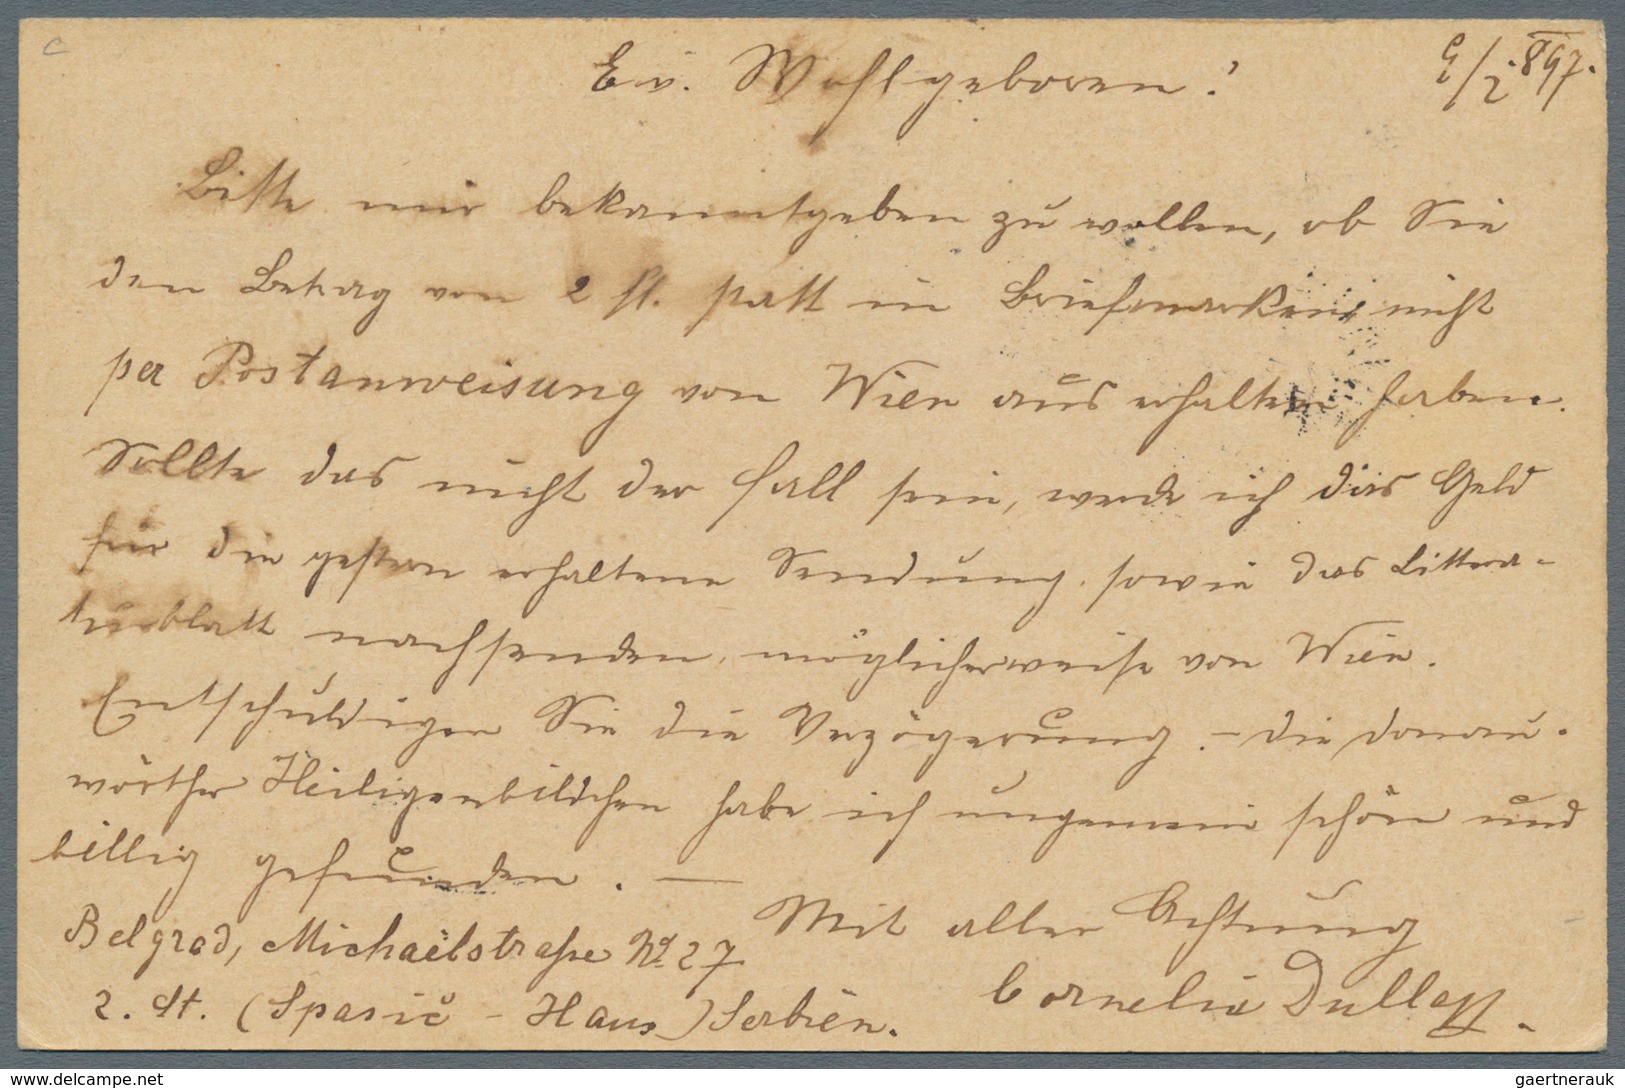 Ew. Wohlgeboren!
9/2. 897.
Bitte mir bekanntgeben zu wollen, ob Sie
den Betrag von 2 fl. statt in Briefmarken nicht
per Postanweisung von Wien aus erhalten haben.
Sollte das nicht der Fall sein, werde ich das Geld
für die gestern erhaltene Sendung, sowie das Littera-
turblatt nachsenden, möglicherweise von Wien.
Entschuldigen Sie die Verzögerung. – Die Donau-
wörther Heiligenbildchen habe ich ungemein schön und
billig gefunden. —
Mit aller Achtung
Cornelia
Belgrad, Michaelstraße No 27
2. St. (Spasić-Haus) Serbien.
www.delcampe.net
gaertnerauk